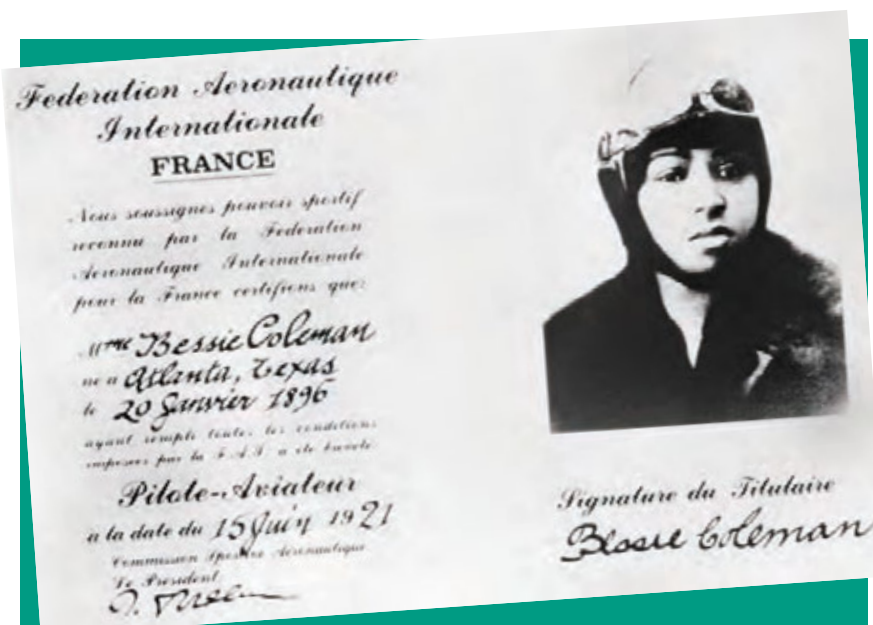 Federation Aeronautique
Internationale
FRANCE
Nous soussignes pouvoir sportif
reconnu par la Federation
Aeronautique Internationale
pour la France certifions que:
Mme Bessie Coleman
né a Atlanta, Texas
le 20 Janvier 1896
ayant remple toutes les conditions
imposees par la F.A.I. a été breveté
Pilote-Aviateur
a la date du 15 Juin 1921
Commission Sportive Aéronautique
Le President
Signature du Titulaire
Bessie Coleman